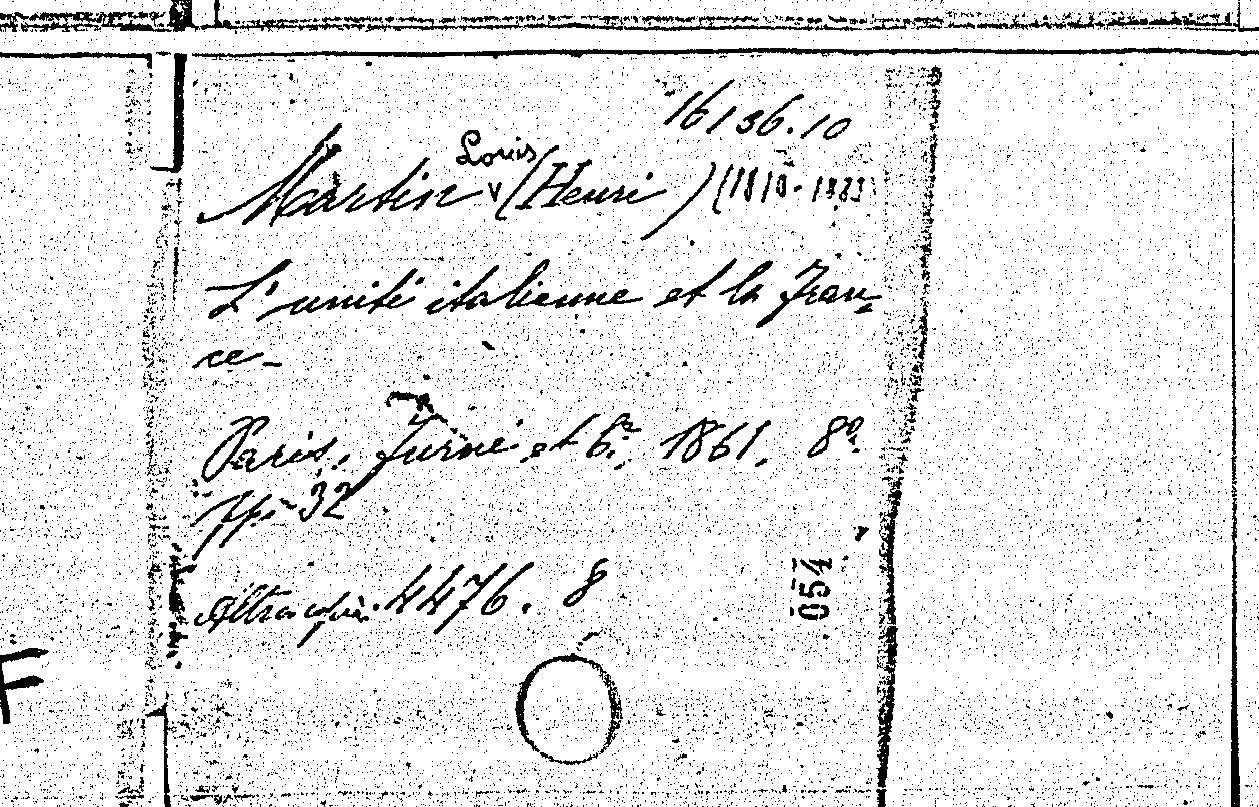 16136.10
Martin Louis (Henri) (1810-1883)
L'unité italienne et la Fran-
ce -
Paris, Furne et C.ie, 1861. 8º.
pp. 32
Altra copia: 4476. 8
054
F